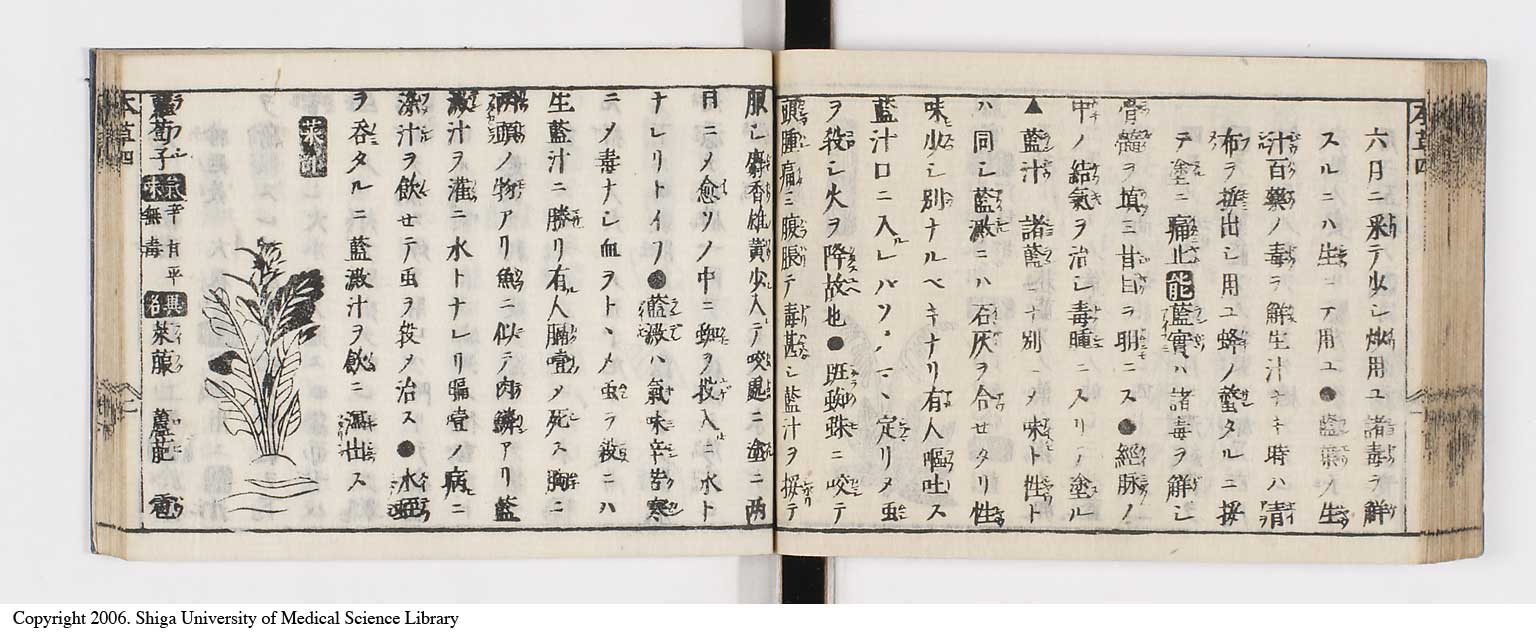 本草四
六月ニ釆テ少シ炒用ユ諸毒ヲ解
スルニハ生ニテ用ユ●藍葉ノ生
汁百藥ノ毒ヲ解生汁ナキ時ハ青
布ヲ挼出シ用ユ蜂ノ螫タルニ挼
テ塗ニ痛止 能 藍實ハ諸毒ヲ解シ
骨髓ヲ填ニ甘目ヲ明ニス●經脉ノ
中ノ結氣ヲ治シ毒腫ニスリテ塗ル
▲藍汁 諸藍ト別ニメ味ト性ト
ハ同シ藍澱ニハ石灰ヲ合セタリ性
味少シ別ナルベキナリ有人嘔吐ス
藍汁口ニ入レバソノマヽ定リメ虫
ヲ殺シ火ヲ降故也●斑蜘蛛ニ咬テ
頭腫痛ミ腹脹テ毒甚シ藍汁ヲ挼テ
服シ麝香雄黄少入テ咬處ニ塗ニ两
日ニメ愈ソノ中ニ蜘ヲ投入ニ水ト
ナレリトイフ●藍澱ハ氣味辛苦寒
ニメ毒ナシ血ヲトヽメ虫ヲ殺ニハ
生藍汁ニ勝リ有人膈噎メ死ス胸ニ
两頭ノ物アリ魚ニ似テ肉鱗アリ藍
澱汁ヲ灌ニ水トナレリ膈噎ノ病ニ
染汁ヲ飲セテ虫ヲ殺メ治ス●水蛭
ヲ呑タルニ藍澱汁ヲ飲ニ瀉出ス
萊菔
蘿蔔子 氣味 辛甘平無毒 異名 萊菔 蘆萉 雹
本草四
Copyright 2006. Shiga University of Medical Science Library